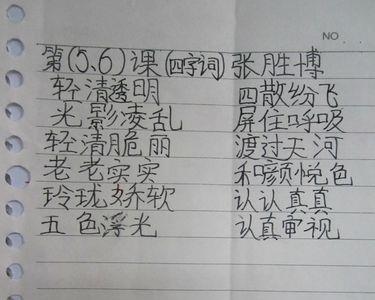 NO
第(5、6)课(四字词) 张胜博
轻清透明 四散纷飞
光影凌乱 屏住呼吸
轻清脆丽 渡过天河
老老实实 和颜悦色
玲珑娇软 认认真真
五色浮光 认真审视